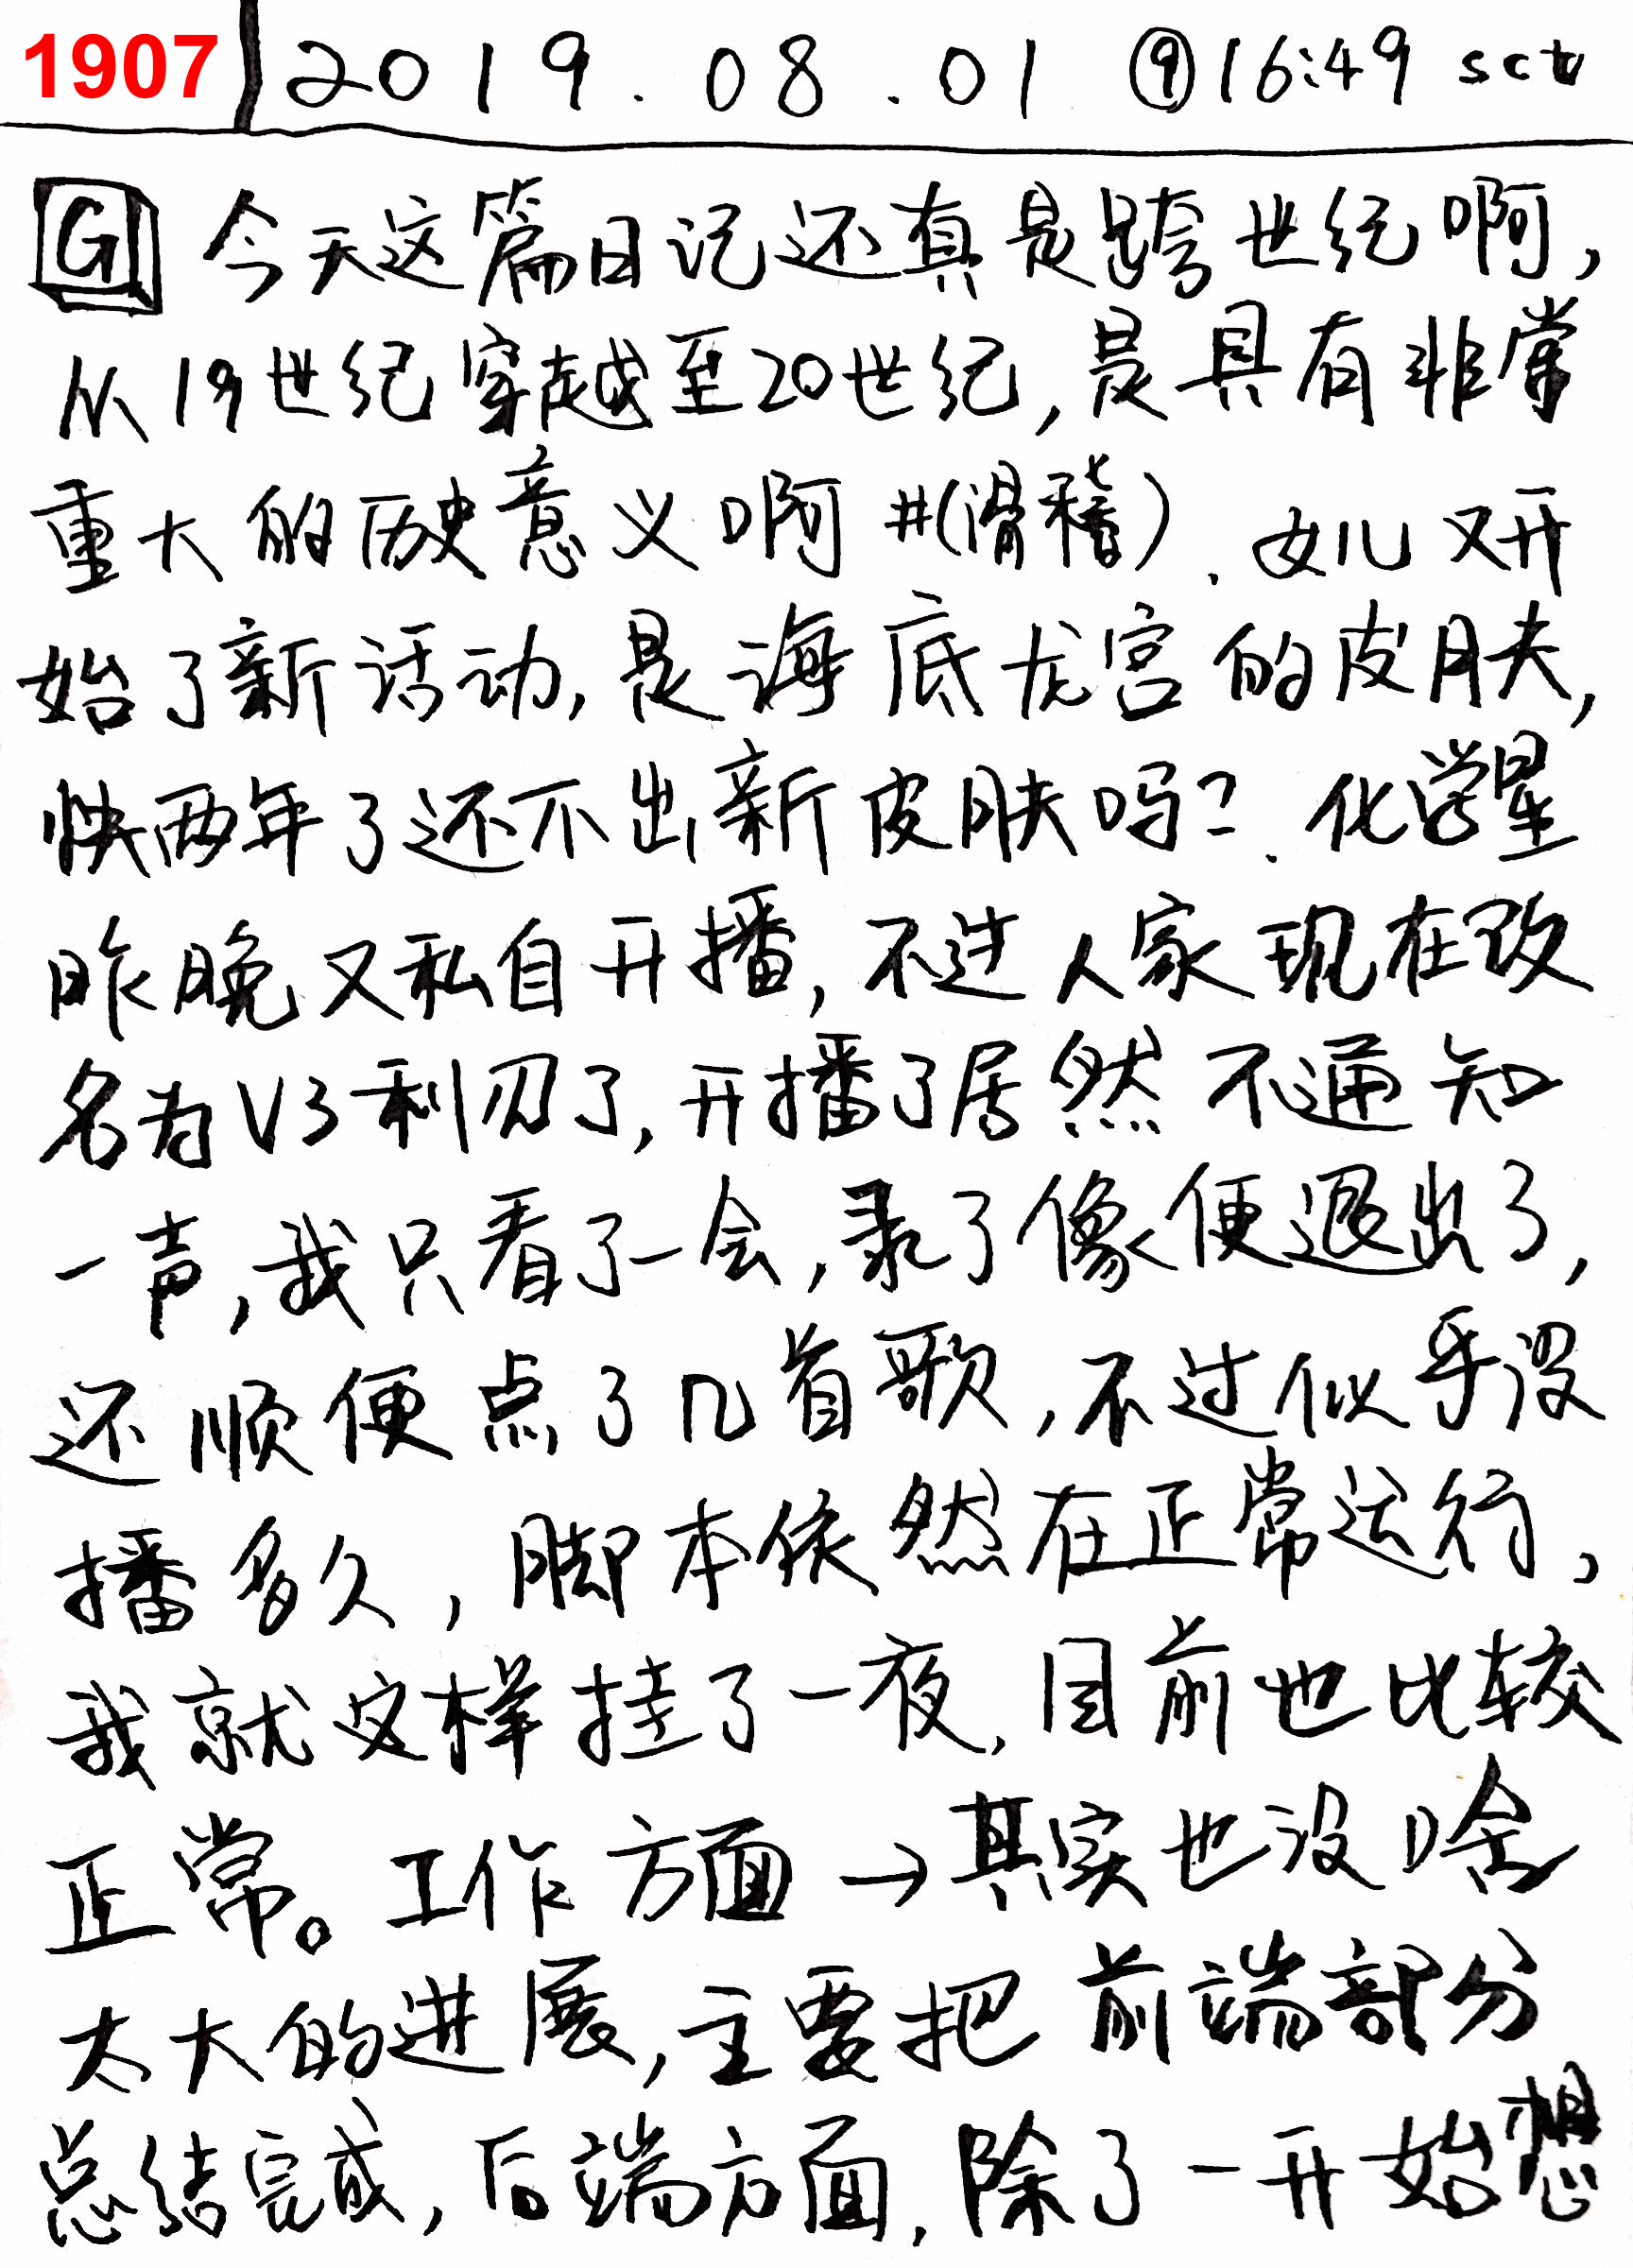 1907 2019.08.01 ⑨16:49 sct
G 今天这篇日记还真是跨世纪啊,
从19世纪穿越至20世纪,是具有非常
重大的历史意义啊#(滑稽).女儿又开
始了新活动,是海底龙宫的皮肤,
快两年了还不出新皮肤吗?.化学星
昨晚又私自开播,不过人家现在改
名为V3利刃了,开播了居然不通知
一声,我只看了一会,录了像便退出了,
还顺便点了几首歌,不过似乎没
播多久,脚本依然在正常运行,
我就这样挂了一夜,目前也比较
正常。工作方面→其实也没啥
太大的进展,主要把前端部分
总结完成,后端方面,除了一开始想